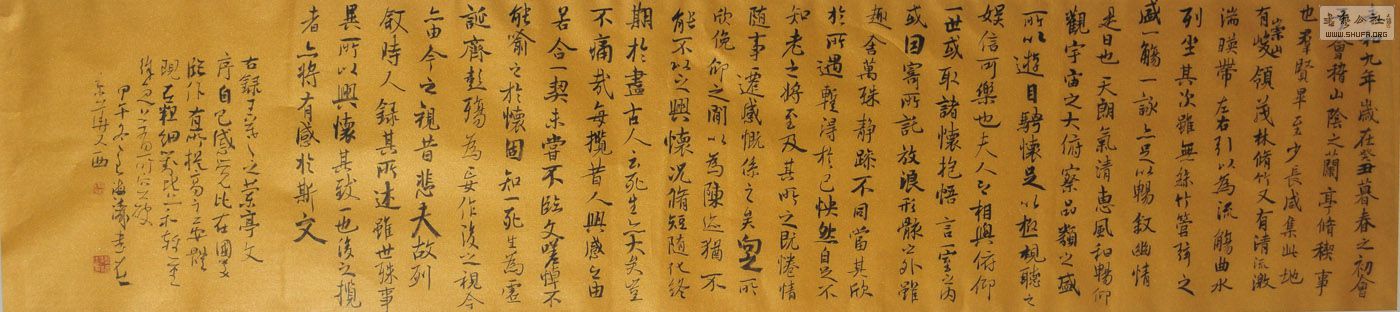 和九年歲在癸丑暮春之初會
會稽山陰之蘭亭脩稧事
也羣賢畢至少長咸集此地
有崇山峻領茂林脩竹又有清流激
湍暎帶左右引以為流觴曲水
列坐其次雖無絲竹管弦之
盛一觴一詠亦足以暢敘幽情
是日也天朗氣清惠風和暢仰
觀宇宙之大俯察品類之盛
所以遊目騁懷足以極視聽之
娛信可樂也夫人之相與俯仰
一世或取諸懷抱悟言一室之內
或因寄所託放浪形骸之外雖
趣舍萬殊靜躁不同當其欣
於所遇蹔得於己怏然自足不
知老之將至及其所之既惓情
隨事遷感慨係之矣向之所
欣俛仰之間以為陳迹猶不
能不以之興懷況脩短隨化終
期於盡古人云死生亦大矣豈
不痛哉每攬昔人興感之由
若合一契未嘗不臨文嗟悼不
能喻之於懷固知一死生為虛
誕齊彭殤為妄作後之視今
亦由今之視昔悲夫故列
敘時人錄其所述雖世殊事
異所以興懷其致一也後之攬
者亦將有感於斯文
右録王羲之蘭亭文
序自己感覺比在國
臨作有所提高
現在粗細對比
甲午海濤書
公社
WWW.SHUFA.ORG